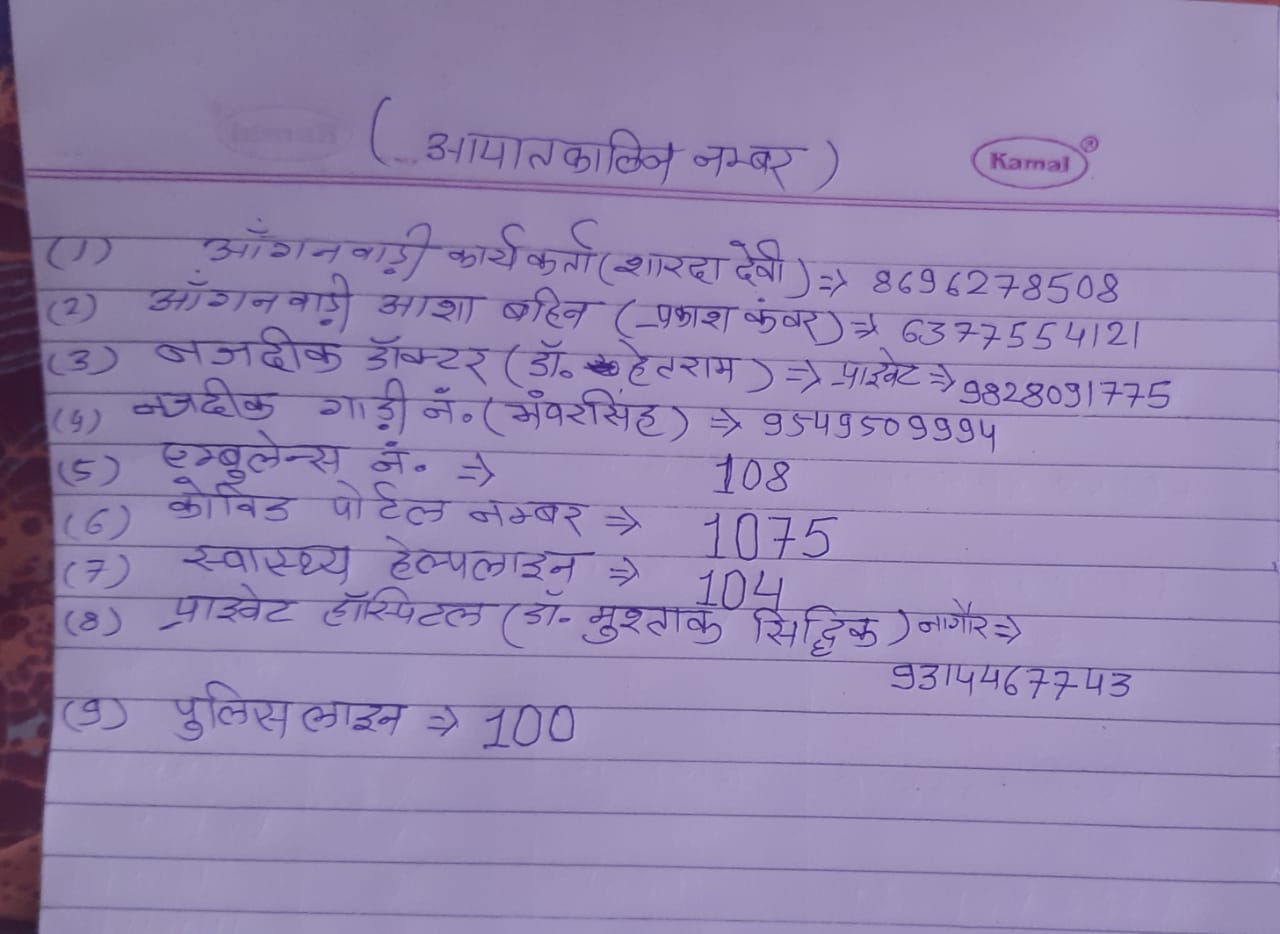 (आपातकालिन नम्बर)
Kamal
(1) आँगनवाड़ी कार्यकर्ता (शारदा देवी) => 8696278508
(2) आँगनवाड़ी आशा बहिन (प्रकाश कंवर) => 6377554121
(3) नजदीक डॉक्टर (डॉ. हेतराम) => प्राइवेट => 9828091775
(4) नजदीक गाड़ी नं. (भंवरसिंह) => 9549509994
(5) एम्बुलेन्स नं. => 108
(6) कोविड पोर्टल नम्बर => 1075
(7) स्वास्थ्य हेल्पलाइन => 104
(8) प्राइवेट हॉस्पिटल (डॉ. मुश्ताक सिद्दिक) नागौर =>
9314467743
(9) पुलिस लाइन => 100